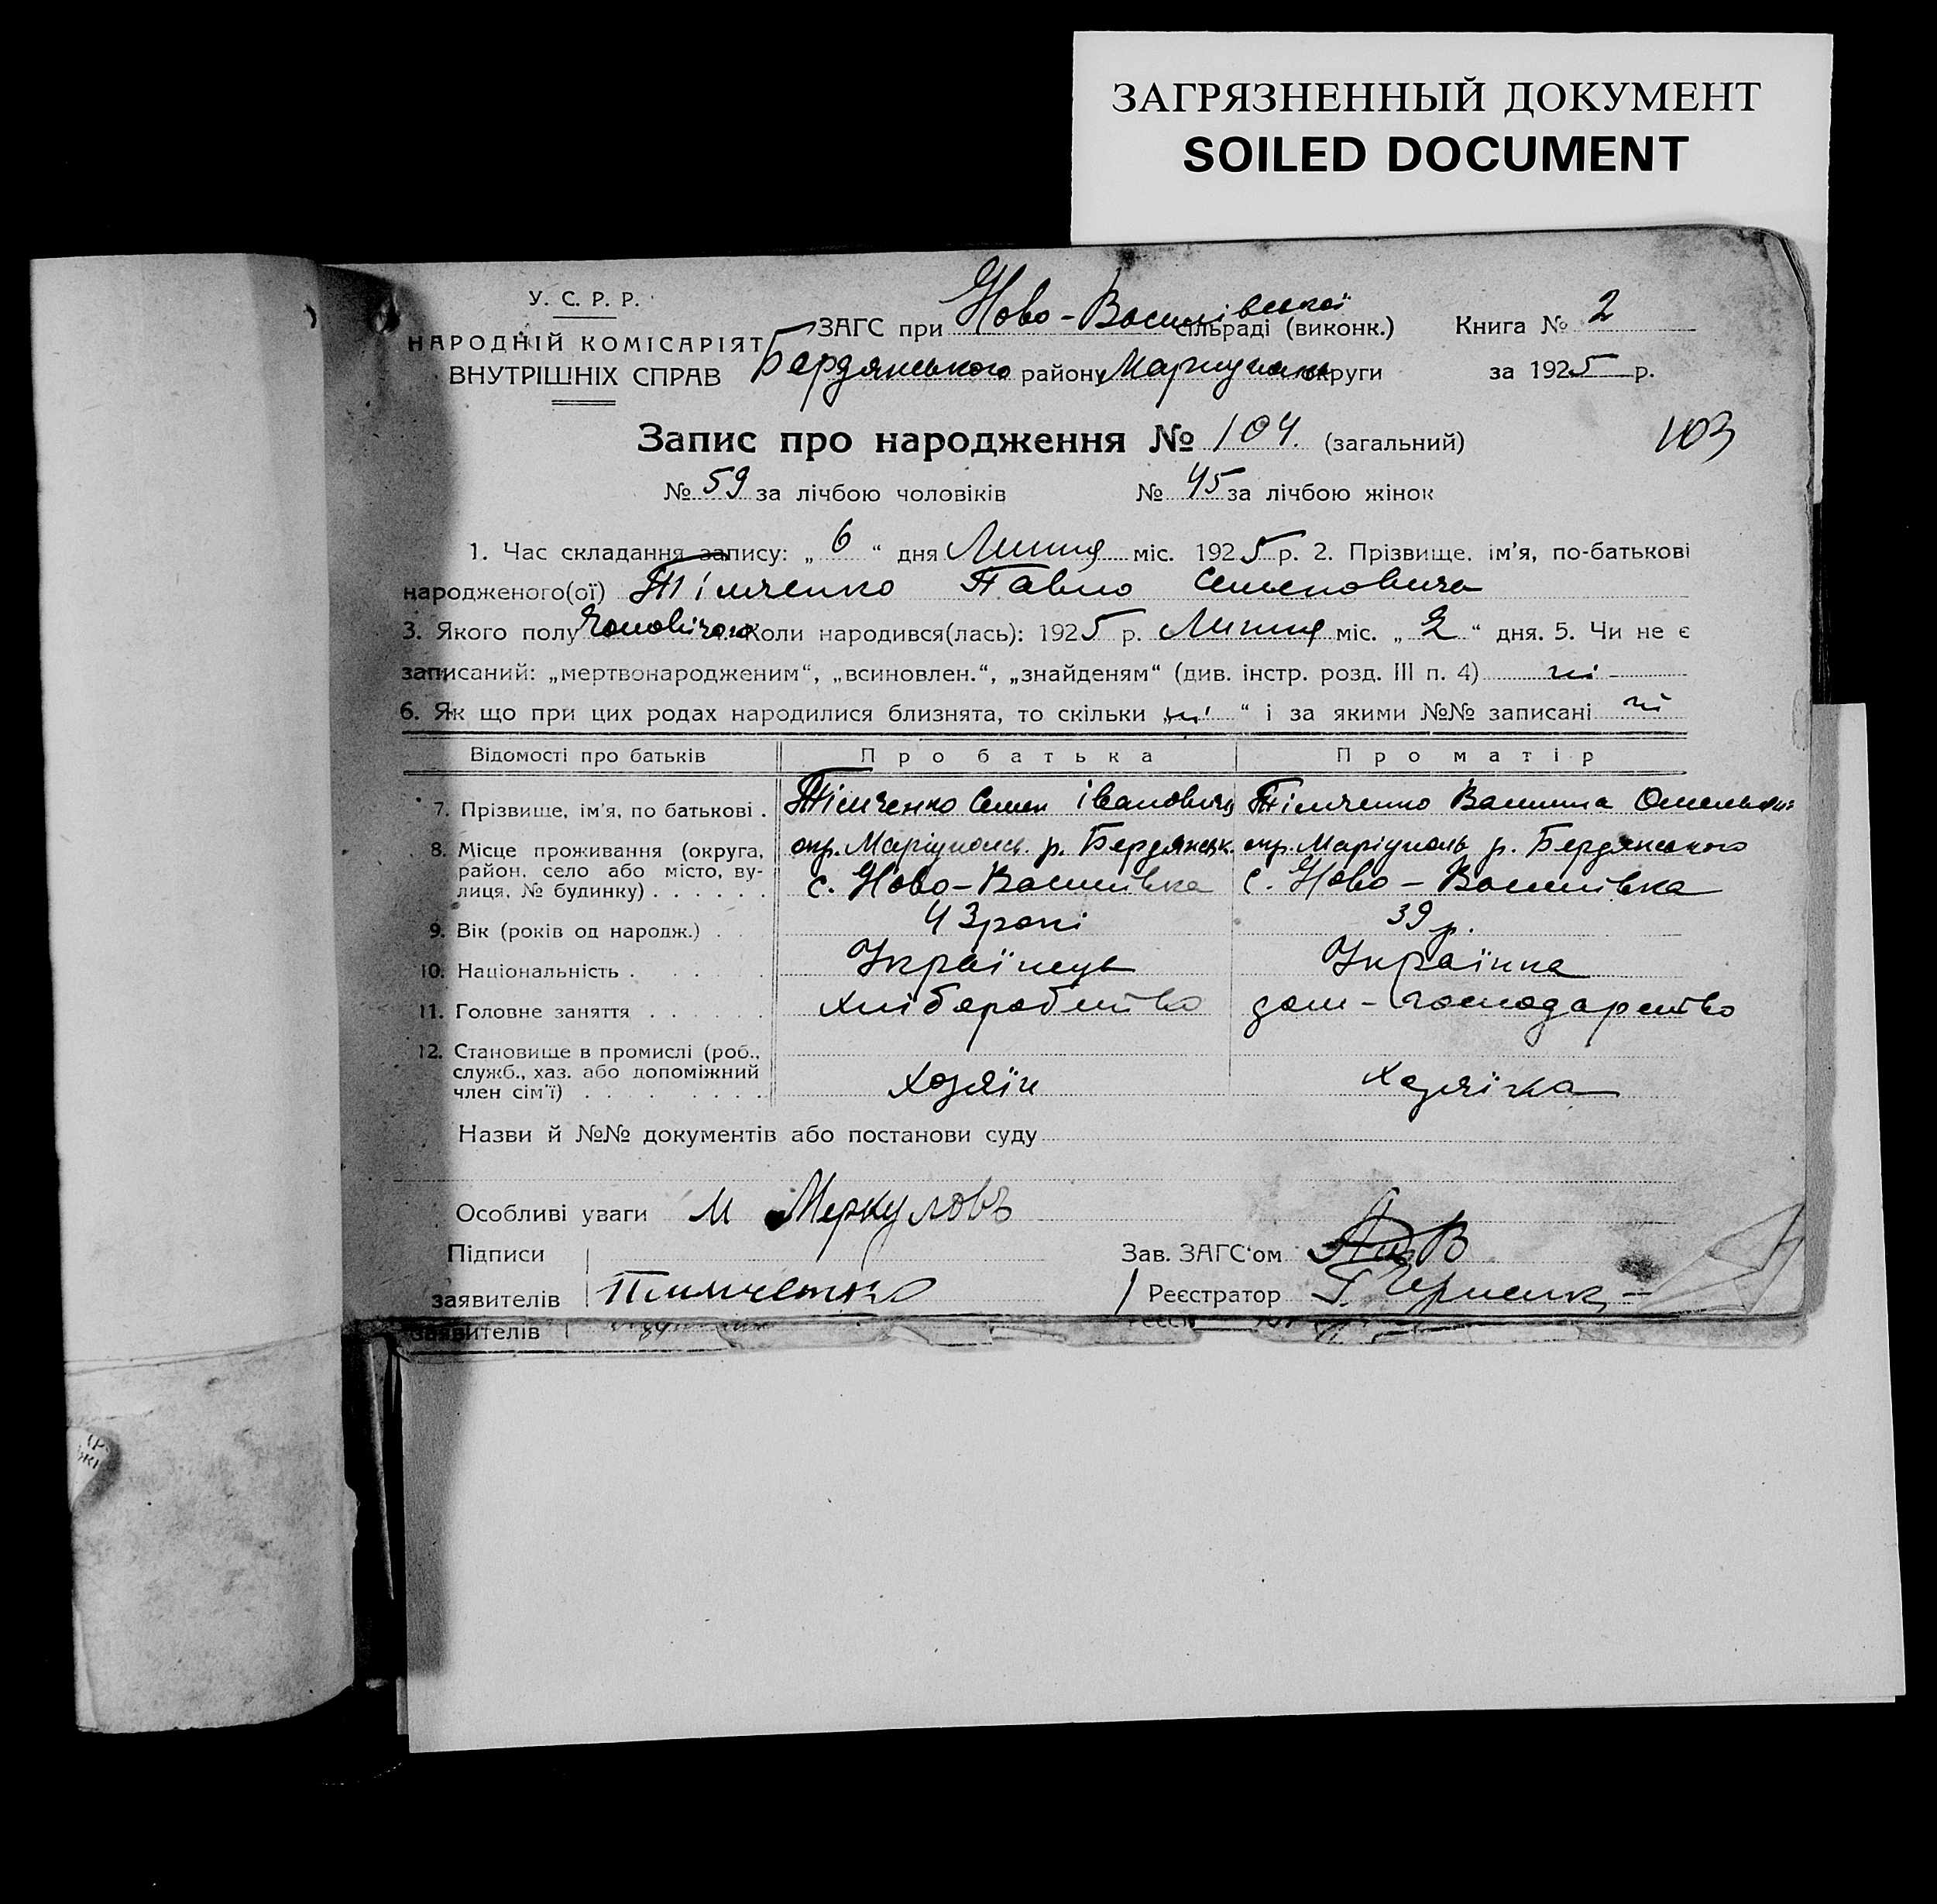 ЗАГРЯЗНЕННЫЙ ДОКУМЕНТ
SOILED DOCUMENT
У. С. Р. Р.
НАРОДНІЙ КОМІСАРІЯТ
ВНУТРІШНІХ СПРАВ
ЗАГС при Ново-Василівської сільраді (виконк.)
Книга № 2
Бердянського району Маріуполь округи
за 1925 р.
Запис про народження № 104. (загальний)
103
№ 59 за лічбою чоловіків № 45 за лічбою жінок
1. Час складання запису: „ 6 “ дня Липня міс. 1925 р. 2. Прізвище, ім’я, по-батькові
народженого(ої) Тімченко Павло Семенович
3. Якого полу Коли народився(лась): 1925 р. Липня міс. „ 2 “ дня. 5. Чи не є
записаний: „мертвонародженим“, „всиновлен.“, „знайденям“ (див. інстр. розд. III п. 4) ні
6. Як що при цих родах народилися близнята, то скільки „ ні “ і за якими №№ записані ні
Відомості про батьків Про батька Про матір
7. Прізвище, ім’я, по батькові . Тімченко Семен Іванович Тімченко Омельян
8. Місце проживання (округа, район, село або місто, вулиця, № будинку)
окр. Маріуполь р. Бердянськ окр. Маріуполь р. Бердянського
с. Ново-Василівка с. Ново-Василівка
9. Вік (років од народж.) . 43 рокі 39 р.
10. Національність . Українець Українка
11. Головне заняття хліборобство дом-господарство
12. Становище в промислі (роб., служб., хаз. або допоміжний член сім’ї) Хозяїн Хозяїнка
Назви й №№ документів або постанови суду
Особливі уваги М Меркуловъ
Підписи
заявителів Тимченко
Зав. ЗАГС’ом
Реєстратор Г.
заявителів